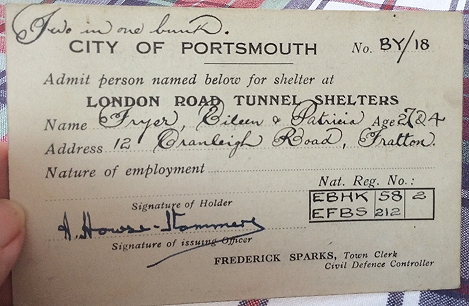 Two in one bunk.
CITY OF PORTSMOUTH No. BY/18
Admit person named below for shelter at
LONDON ROAD TUNNEL SHELTERS
Name Fryer, Eileen & Patricia Age 27&4
Address 12 Cranleigh Road, Fratton.
Nature of employment
Nat. Reg. No.:
EBHK 58 2
EFBS 212
Signature of Holder
A. Howse-Stammers
Signature of issuing Officer
FREDERICK SPARKS, Town Clerk
Civil Defence Controller